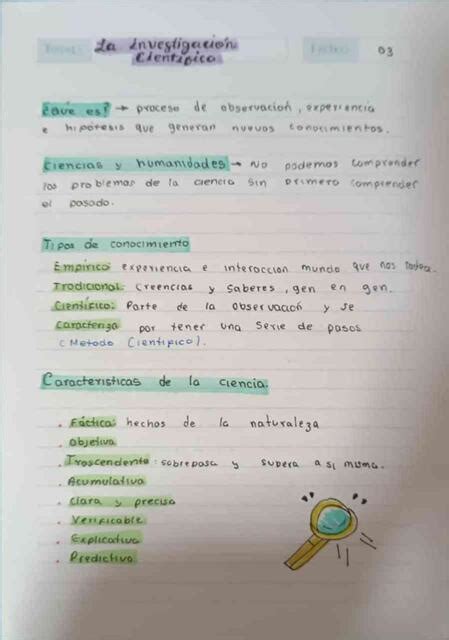 Tema: La Investigación Fecha: 03
Científica
¿Qué es? → proceso de observación, experiencia
e hipótesis que generan nuevos conocimientos.
Ciencias y humanidades → No podemos comprender
los problemas de la ciencia sin primero comprender
el pasado.
Tipos de conocimiento
Empírico: experiencia e interaccion mundo que nos rodea.
Tradicional: Creencias y Saberes, gen en gen.
Científico: Parte de la observación y se
caracteriza por tener una Serie de pasos
(Metodo Científico).
Características de la ciencia.
• Fáctica: hechos de la naturaleza
• Objetiva
• Trascendente: sobrepasa y supera a si misma.
• Acumulativa
• Clara y precisa
• Verificable
• Explicativa
• Predictiva